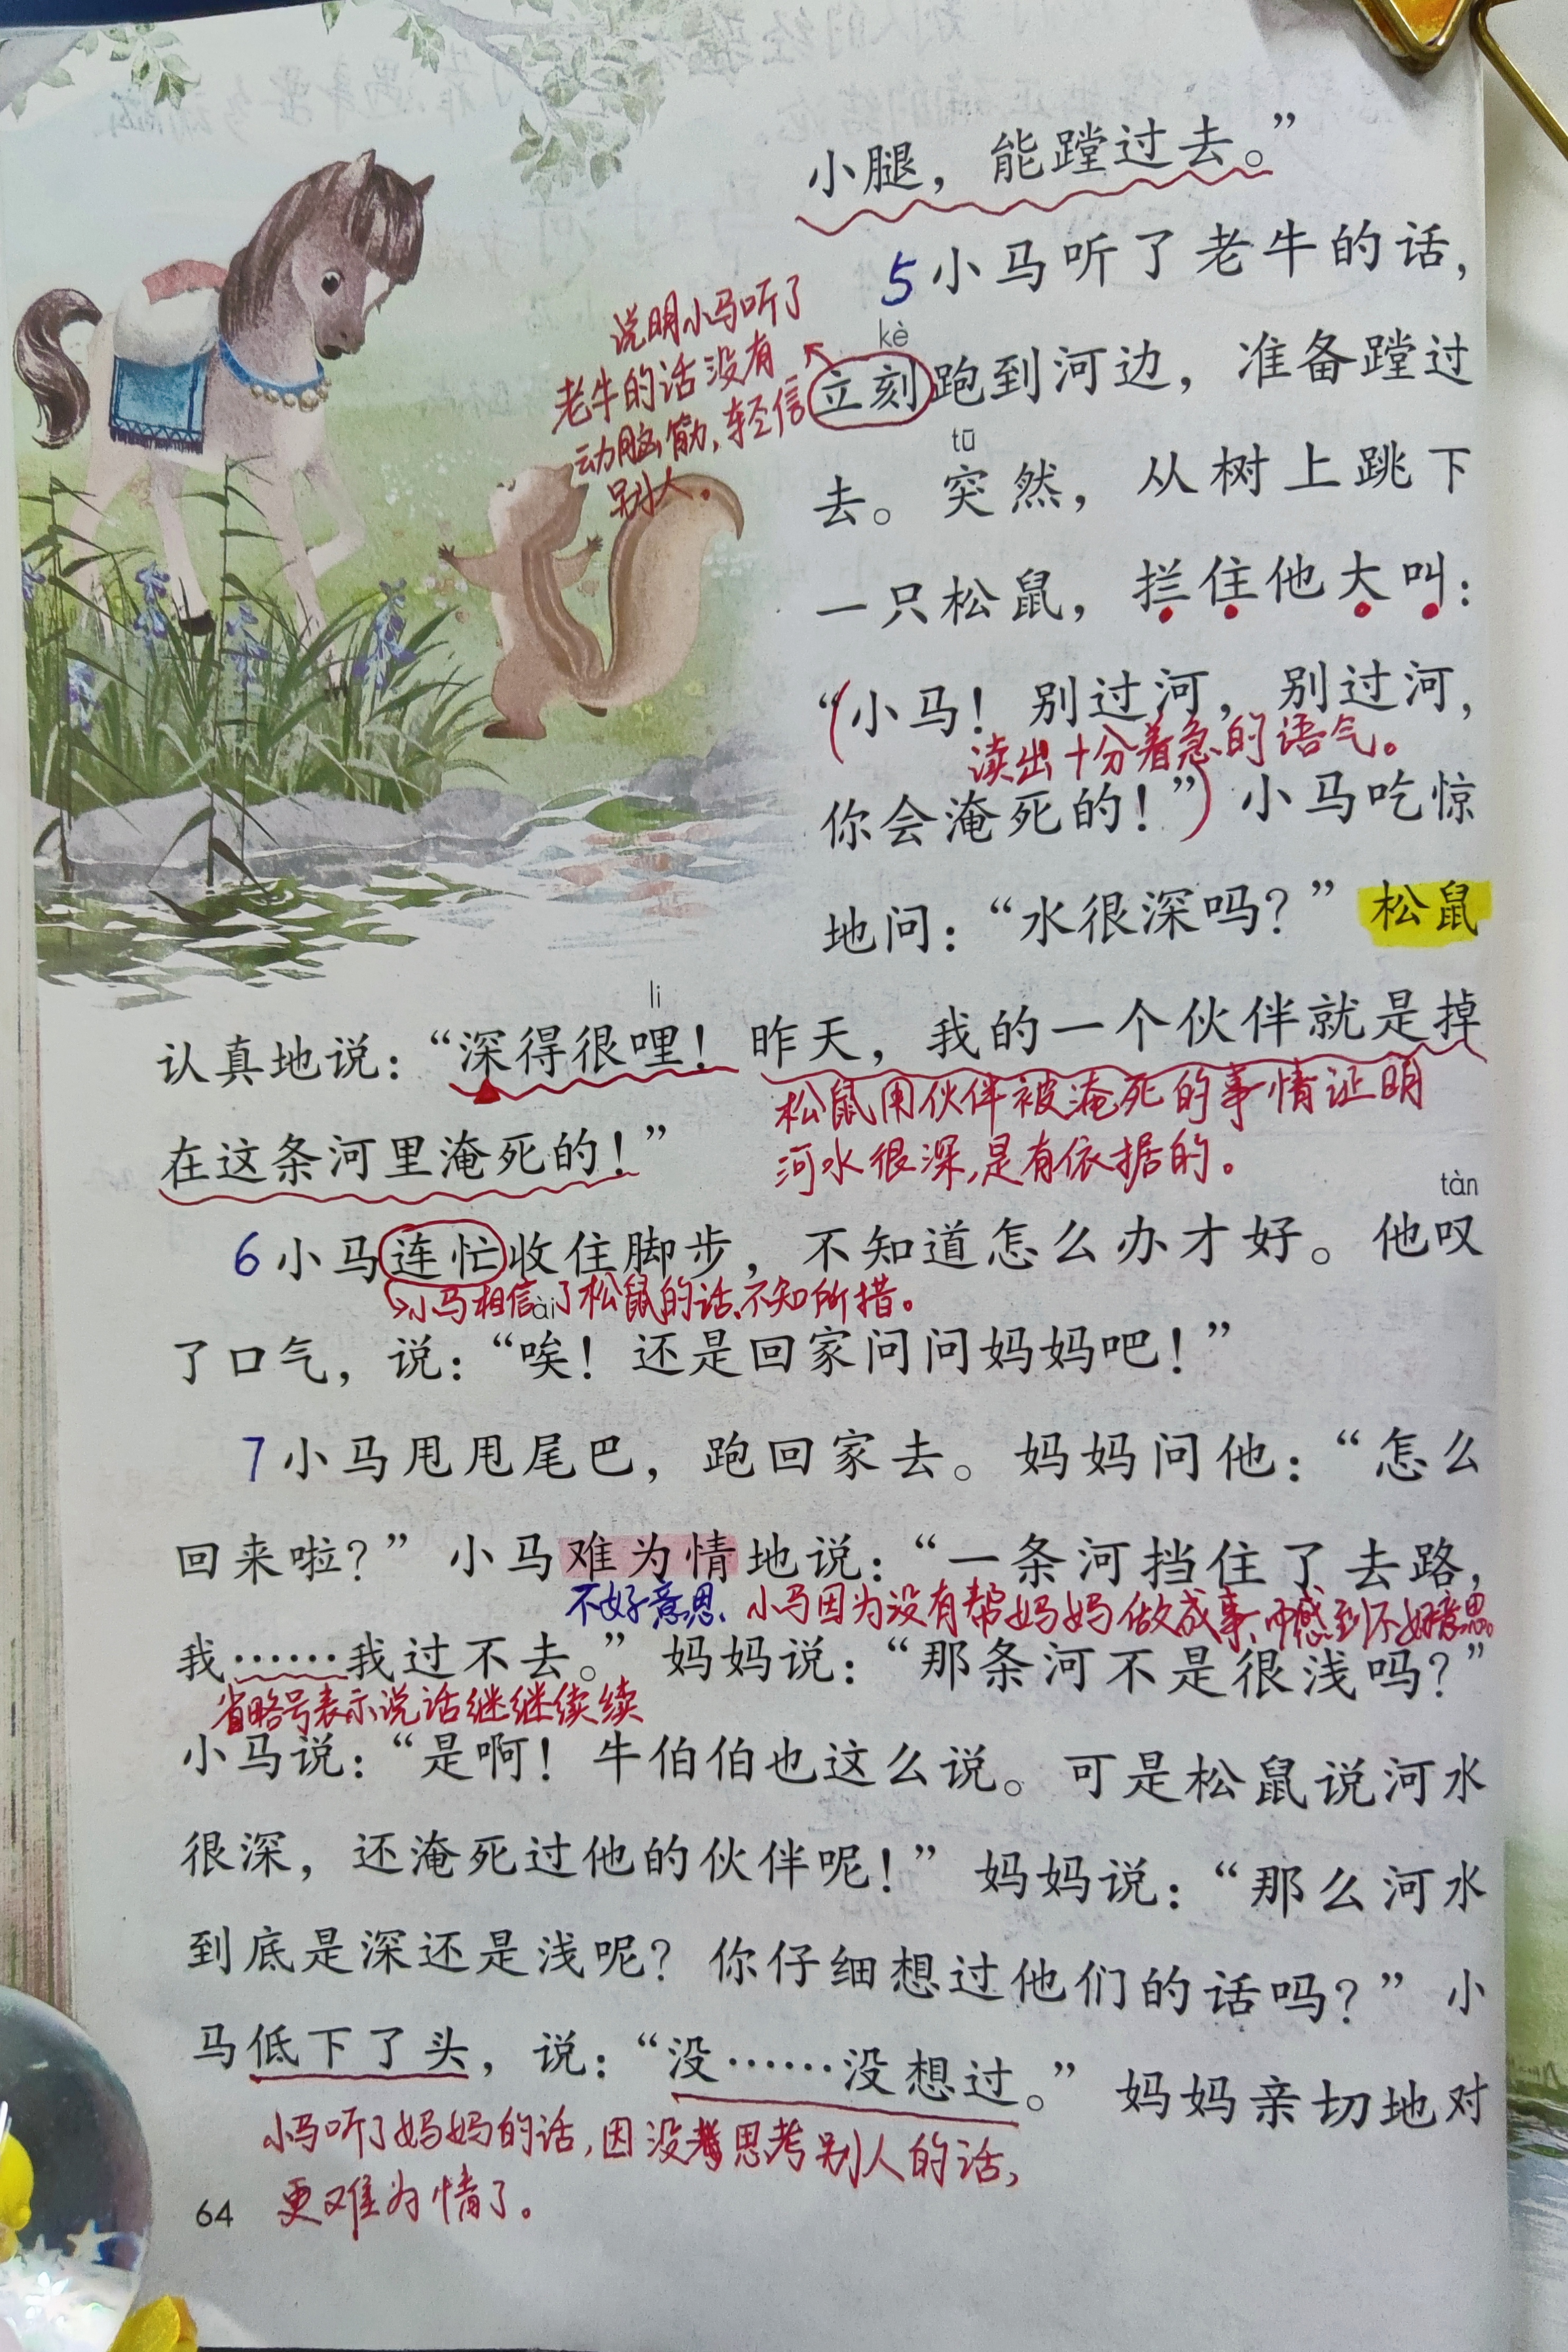 小腿，能蹚过去。”
5 小马听了老牛的话，
说明小马听了
老牛的话没有
动脑筋，轻信
别人。
kè
立刻跑到河边，准备蹚过
tū
去。突然，从树上跳下
一只松鼠，拦住他大叫：
“小马！别过河，别过河，
读出十分着急的语气。
你会淹死的！”小马吃惊
地问：“水很深吗？”松鼠
li
认真地说：“深得很哩！昨天，我的一个伙伴就是掉
松鼠用伙伴被淹死的事情证明
河水很深，是有依据的。
在这条河里淹死的！”
tàn
6 小马连忙收住脚步，不知道怎么办才好。他叹
小马相信了松鼠的话、不知所措。
ài
了口气，说：“唉！还是回家问问妈妈吧！”
7 小马甩甩尾巴，跑回家去。妈妈问他：“怎么
回来啦？”小马难为情地说：“一条河挡住了去路，
不好意思、小马因为没有帮妈妈做成事、而感到不好意思。
我……我过不去。”妈妈说：“那条河不是很浅吗？”
省略号表示说话继继续续
小马说：“是啊！牛伯伯也这么说。可是松鼠说河水
很深，还淹死过他的伙伴呢！”妈妈说：“那么河水
到底是深还是浅呢？你仔细想过他们的话吗？”小
马低下了头，说：“没……没想过。”妈妈亲切地对
小马听了妈妈的话，因没思考别人的话，
更难为情了。
64